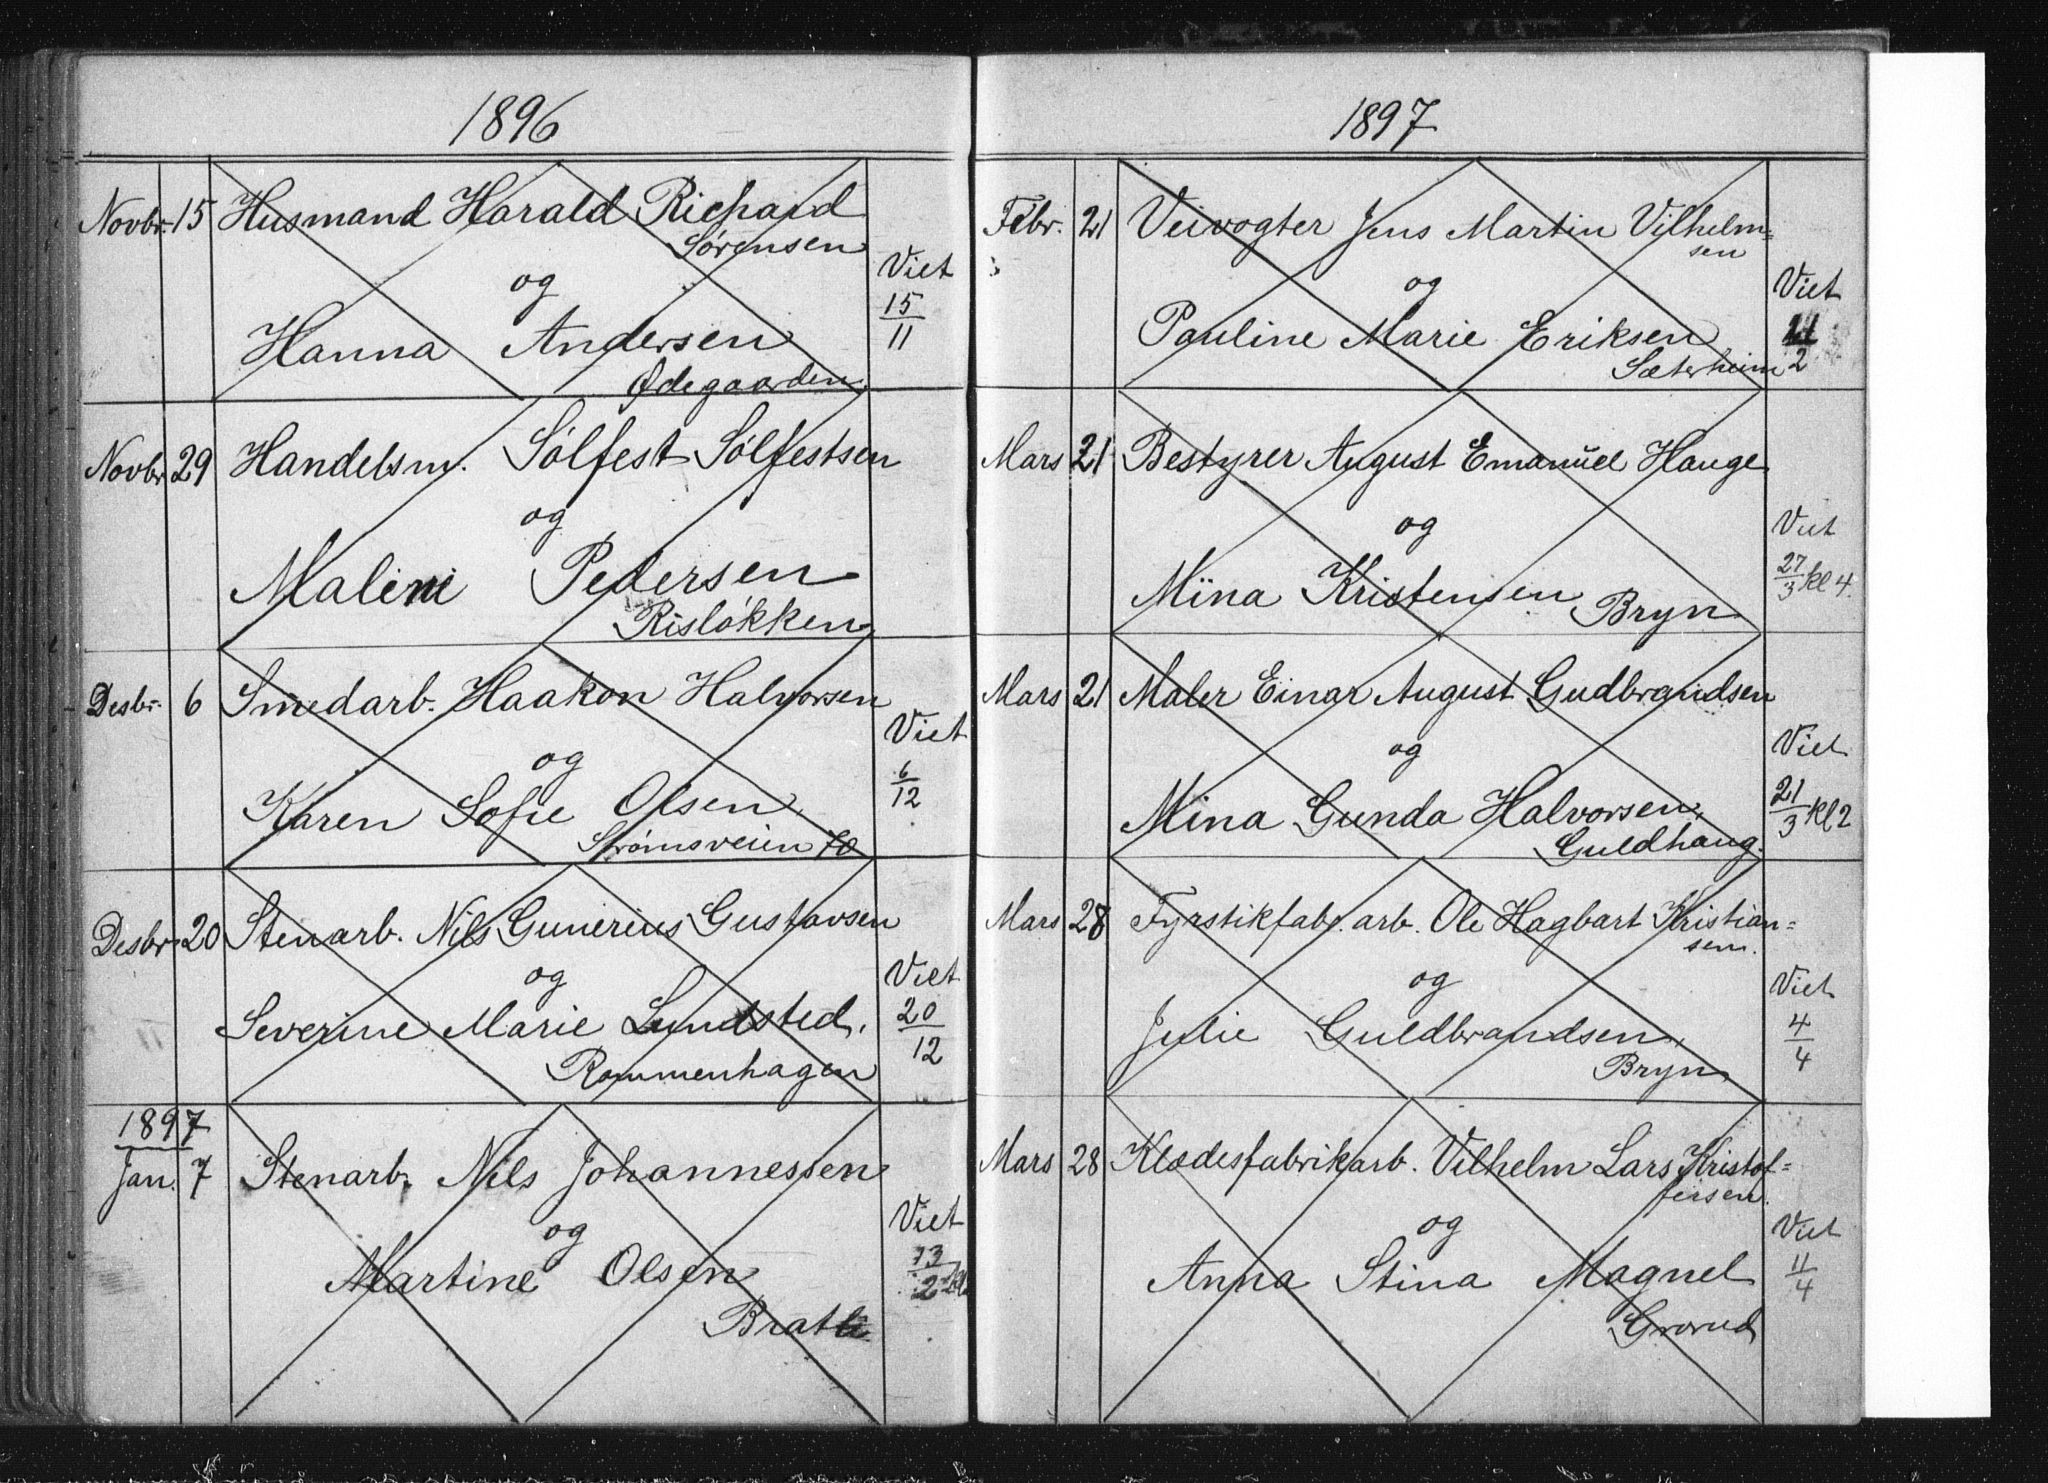 1896
Novbr. 15 Husmand Harald Richard
Sørensen
og
Hanna Andersen
Ødegaarden
Viet
15/11
Novbr 29 Handelsm. Sølfest Sølfestsen
og
Malini Pedersen
Risløkken
Desbr. 6 Smedarb. Haakon Halvorsen
og
Karen Sofie Olsen
Strømsveien 70
Viet
6/12
Desbr 20 Stenarb. Nils Gunerius Gustavsen
og
Severine Marie Lundsted,
Rommenhagen
Viet
20/12
1897
Jan. 7 Stenarb. Nils Johannessen
og
Martine Olsen
Bratli
Viet
1897
Febr. 21 Veivogter Jens Martin Vilhelm=
sen
og
Pauline Marie Eriksen
Sæterheim
Viet
21/2
Mars 21 Bestyrer August Emanuel Hauge
og
Mina Kristensen
Bryn
Viet
27/3 kl 4.
Mars 21 Maler Einar August Gudbrandsen
og
Mina Gunda Halvorsen,
Guldhaug.
Viet
21/3 kl 2
Mars 28 Fyrstikfab. arb. Ole Hagbart Kristian=
sen.
og
Julie Guldbrandsen,
Bryn
Viet
4/4
Mars 28 Klædesfabrikarb. Vilhelm Lars Kristof=
fersen.
og
Anna Stina Magnel
Grorud
Viet
11/4